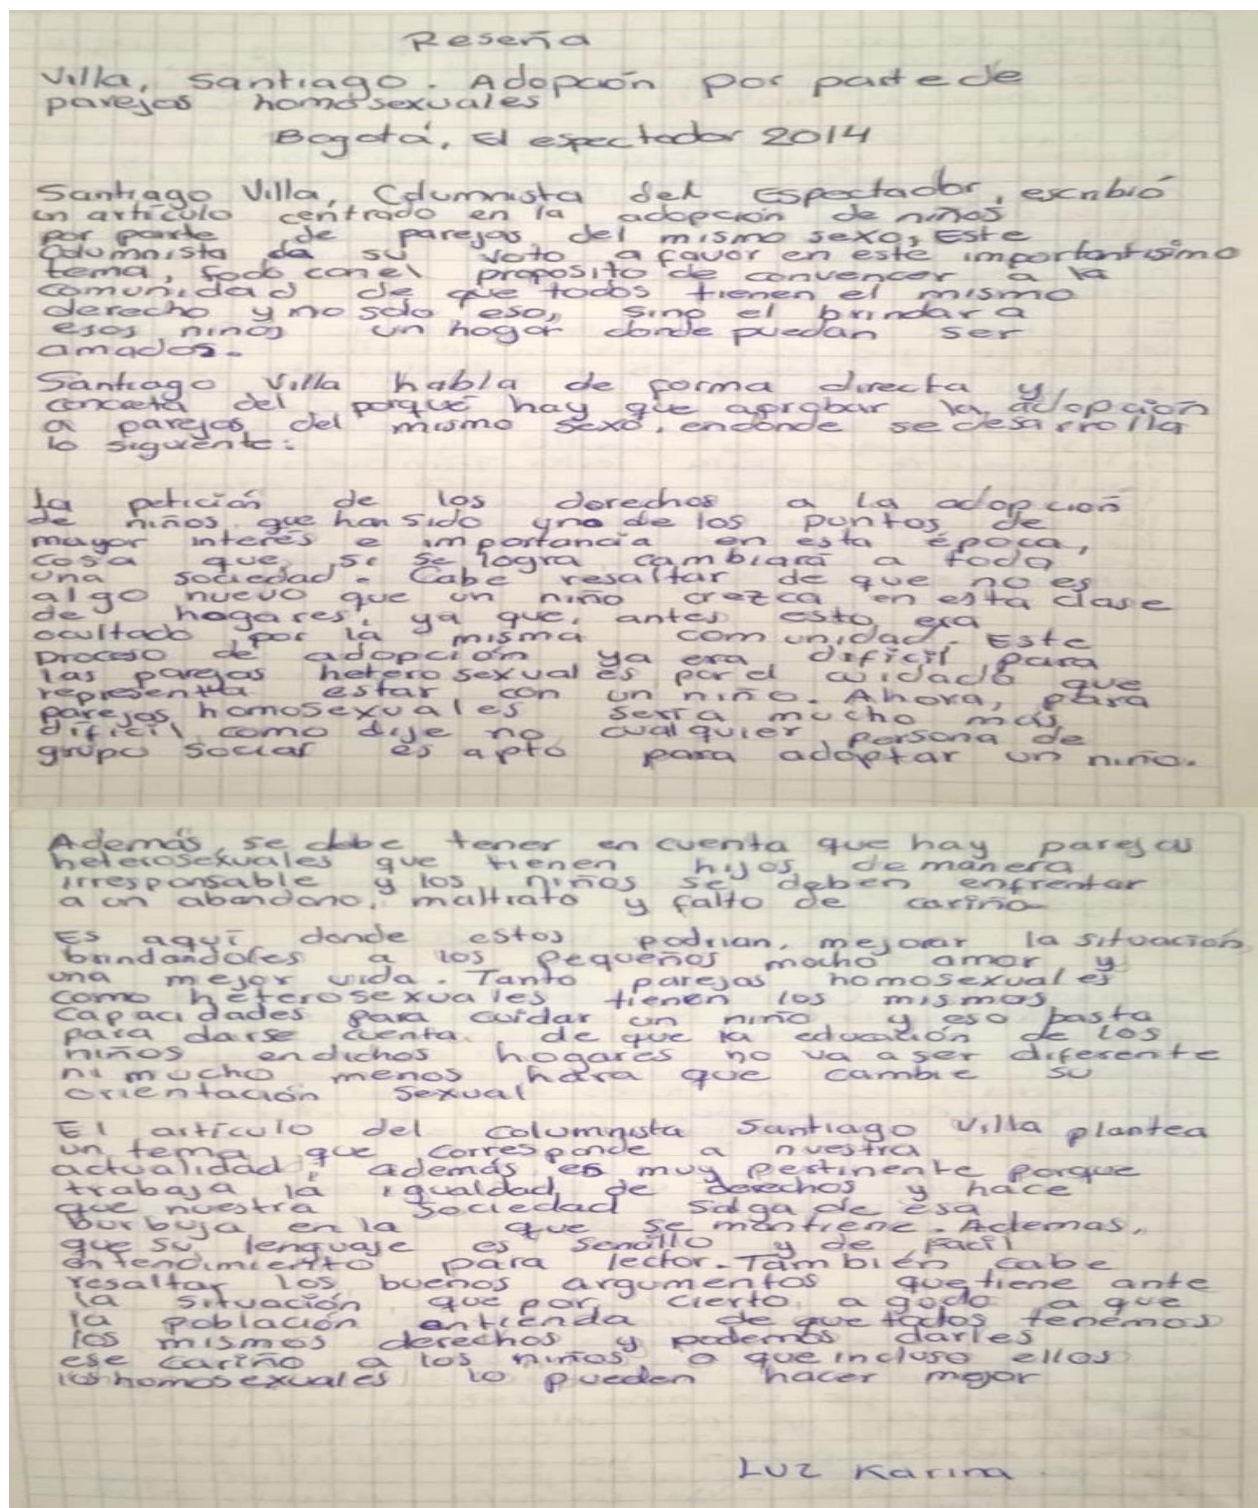 Reseña
Villa, Santiago. Adopción por parte de
parejas homosexuales
Bogotá, El espectador 2014
Santiago Villa, Columnista del Espectador, escribió
un artículo centrado en la adopción de niños
por parte de parejas del mismo sexo, Este
Columnista da su voto a favor en este importantisimo
tema, todo con el proposito de convencer a la
comunidad de que todos tienen el mismo
derecho y no solo eso, sino el brindar a
esos niños un hogar donde puedan ser
amados.
Santiago Villa habla de forma directa y
concreta del porqué hay que aprobar la adopción
a parejas del mismo sexo, endonde se desarrolla
lo siguiente:
La petición de los derechos a la adopción
de niños que han sido uno de los puntos de
mayor interés e importancia en esta época,
cosa que, si se logra cambiará a toda
una sociedad. Cabe resaltar de que no es
algo nuevo que un niño crezca en esta clase
de hogares, ya que, antes esto era
ocultado por la misma comunidad. Este
proceso de adopción ya era dificil para
las parejas heterosexuales por el cuidado que
representa estar con un niño. Ahora, para
parejas homosexuales seria mucho más
dificil como dije no cualquier persona de
grupo social es apto para adoptar un niño.
Además, se debe tener en cuenta que hay parejas
heterosexuales que tienen hijos de manera
irresponsable y los niños se deben enfrentar
a un abandono, maltrato y falto de cariño
Es aquí donde estos podrian, mejorar la situación,
brindandoles a los pequeños mucho amor y
una mejor vida. Tanto parejas homosexuales
como heterosexuales tienen los mismas
capacidades para cuidar un niño y eso basta
para darse cuenta de que la educación de los
niños endichos hogares no va a ser diferente
ni mucho menos hara que cambie su
orientación sexual
El artículo del columnista Santiago Villa plantea
un tema que corresponde a nuestra
actualidad, además es muy pertinente porque
trabaja la igualdad de derechos y hace
que nuestra sociedad salga de esa
burbuja en la que se mantiene. Ademas,
que su lenguaje es sencillo y de facil
entendimiento para lector. También cabe
resaltar los buenos argumentos que tiene ante
la situación que por cierto, a a que
la población entienda de que todos tenemos
los mismos derechos y podemos darles
ese cariño a los niños, o que incluso ellos
los homosexuales lo pueden hacer mejor
Luz Karina